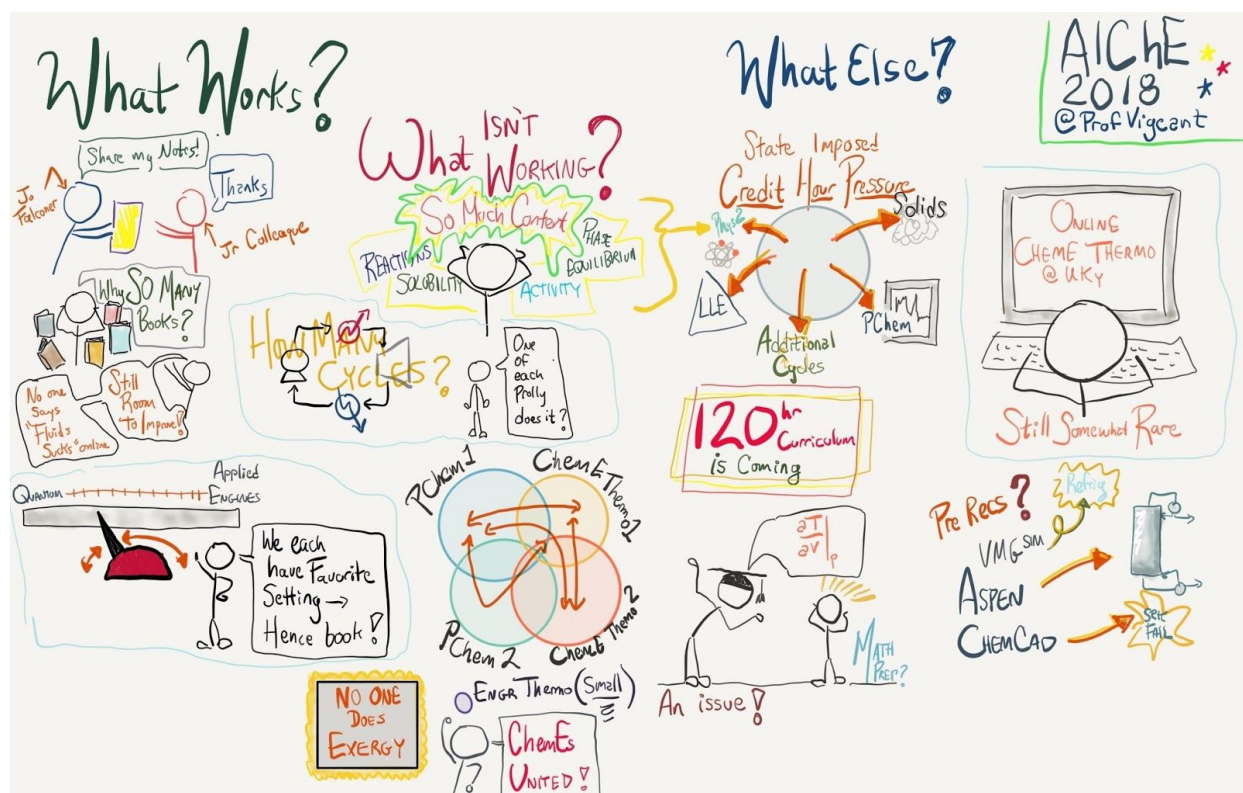 What Works?
Share my Notes!
Jo
Falconer
Thanks
Jr Colleague
Why SO MANY
BOOKS?
No one
Says
"Fluids
Sucks" online
Still
Room
to Improve!
QUANTUM
Applied
ENGINES
We each
have Favorite
Setting →
Hence book!
What ISN'T
WORKING?
So Much Content
REACTIONS
SOLUBILITY
ACTIVITY
PHASE
EQUILIBRIUM
How MANY
CYCLES?
One
of
each
Prolly
does it?
PChem1
ChemE Thermo1
PChem 2
ChemE Thermo 2
ENGR Thermo (Small)
ChemEs
UNITED!
NO ONE
DOES
EXERGY
What Else?
State Imposed
Credit Hour Pressure
Phys2
Solids
LLE
PChem
Additional
Cycles
120 hr
Curriculum
is Coming
∂T
∂V|P
MATH
PREP?
An issue!
AIChE
2018
@ProfVigeant
ONLINE
CHEME THERMO
@ UKy
Still Somewhat Rare
Pre Recs?
Refrig
VMG SIM
ASPEN
CHEMCAD